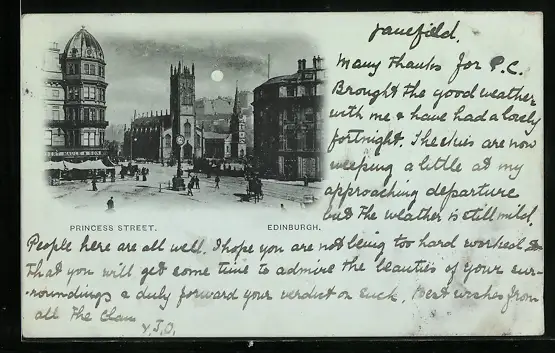 Janefield.
Many thanks for P.C.
Brought the good weather
with me & have had a lovely
fortnight. The skies are now
weeping a little at my
approaching departure
but the weather is still mild.
PRINCESS STREET. EDINBURGH.
People here are all well. I hope you are not being too hard worked &
that you will get some time to admire the beauties of your sur-
-roundings & duly forward your verdict on such. Best wishes from
all the Clan